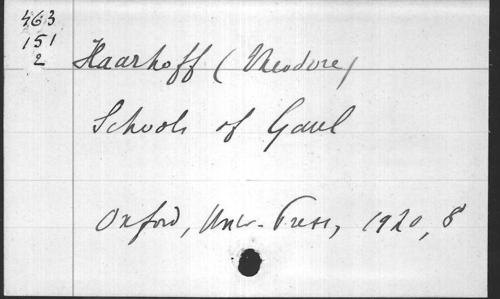 463
151
2
Haarhoff (Theodore)
Schools of Gaul
Oxford, Univ. Press, 1920, 8